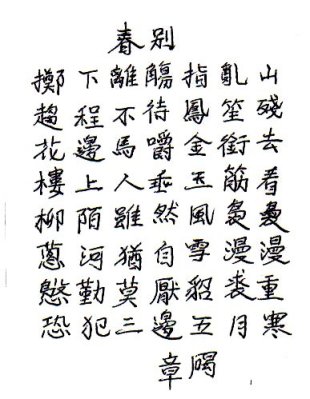 春别
擲下離觴指亂山
趨程不待鳳笙殘
花邊馬嚼金銜去
樓上人垂玉筯看
柳陌雖然風裊裊
蔥河猶自雪漫漫
慇勤莫厭貂裘重
恐犯三邊五月寒
章碣